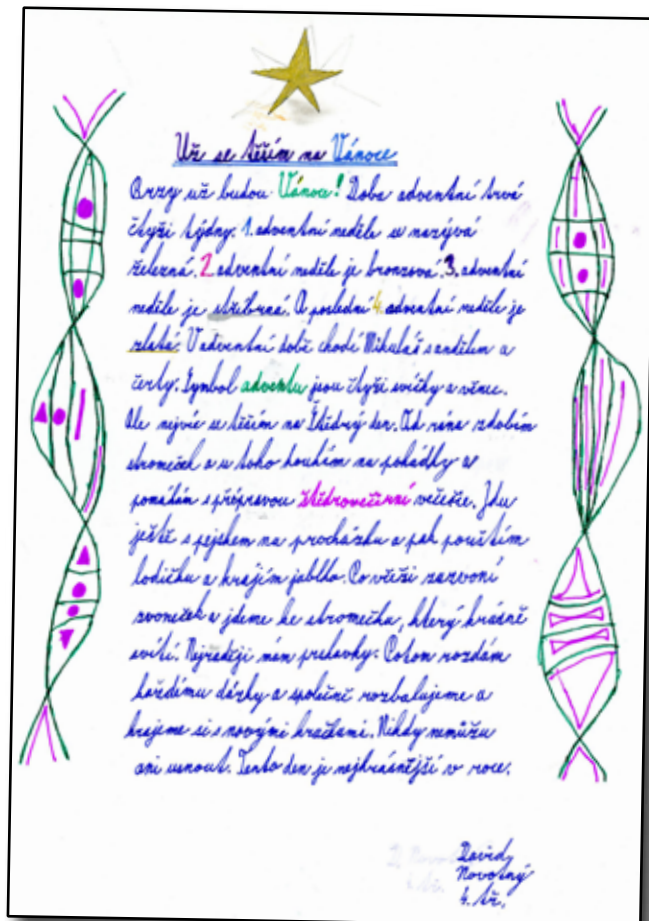 Už se těším na Vánoce
Brzy už budou Vánoce! Doba adventní trvá
čtyři týdny. 1. adventní neděle se nazývá
železná. 2. adventní neděle je bronzová. 3. adventní
neděle je stříbrná. A poslední 4. adventní neděle je
zlatá. V adventní době chodí Mikuláš s andělem a
čerty. Symbol adventu jsou čtyři svíčky a věnec.
Ale nejvíc se těším na Štědrý den. Od rána zdobím
stromeček a u toho koukám na pohádky a
pomáhám s přípravou štědrovečerní večeře. Jdu
ještě s pejskem na procházku a pak pouštím
lodičku a krájím jablko. Po večeři zazvoní
zvoneček a jdeme ke stromečku, který krásně
svítí. Nejraději mám prskavky. Potom rozdám
každému dárky a společně rozbalujeme a
hrajeme si s novými hračkami. Nikdy nemůžu
ani usnout. Tento den je nejkrásnější v roce.
David
Novotný
4. tř.